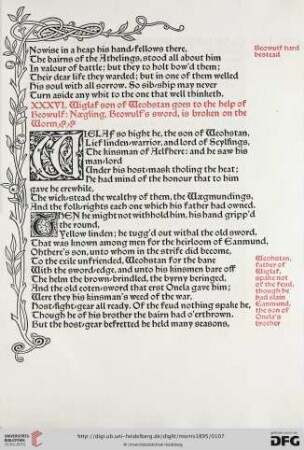 Nowise in a heap his hand-fellows there,
The bairns of the Athelings, stood all about him
In valour of battle; but they to holt bow'd them;
Their dear life they warded; but in one of them welled
His soul with all sorrow. So sib-ship may never
Turn aside any whit to the one that well thinketh.
XXXVI. Wiglaf son of Weohstan goes to the help of
Beowulf: Nægling, Beowulf's sword, is broken on the
Worm.
WIGLAF so hight he, the son of Weohstan,
Lief linden-warrior, and lord of Scylfings,
The kinsman of Aelfhere: and he saw his
man-lord
Under his host-mask tholing the heat;
He had mind of the honour that to him
gave he erewhile,
The wick-stead the wealthy of them, the Wægmundings,
And the folk-rights each one which his father had owned.
THEN he might not withhold him, his hand gripp'd
the round,
Yellow linden; he tugg'd out withal the old sword,
That was known among men for the heirloom of Eanmund,
Ohthere's son, unto whom in the strife did become,
To the exile unfriended, Weohstan for the bane
With the sword-edge, and unto his kinsmen bare off
The helm the brown-brindled, the byrny beringed,
And the old eoten-sword that erst Onela gave him;
Were they his kinsman's weed of the war,
Host-fight-gear all ready. Of the feud nothing spake he,
Though he of his brother the bairn had o'erthrown.
But the host-gear befretted he held many seasons,
Beowulf hard
bestead
Weohstan,
father of
Wiglaf,
spake not
of the feud,
though he
had slain
Eanmund,
the son of
Onela's
brother
UNIVERSITÄTS-
BIBLIOTHEK
HEIDELBERG
http://digi.ub.uni-heidelberg.de/diglit/morris1895/0107
© Universitätsbibliothek Heidelberg
gefördert durch die
DFG